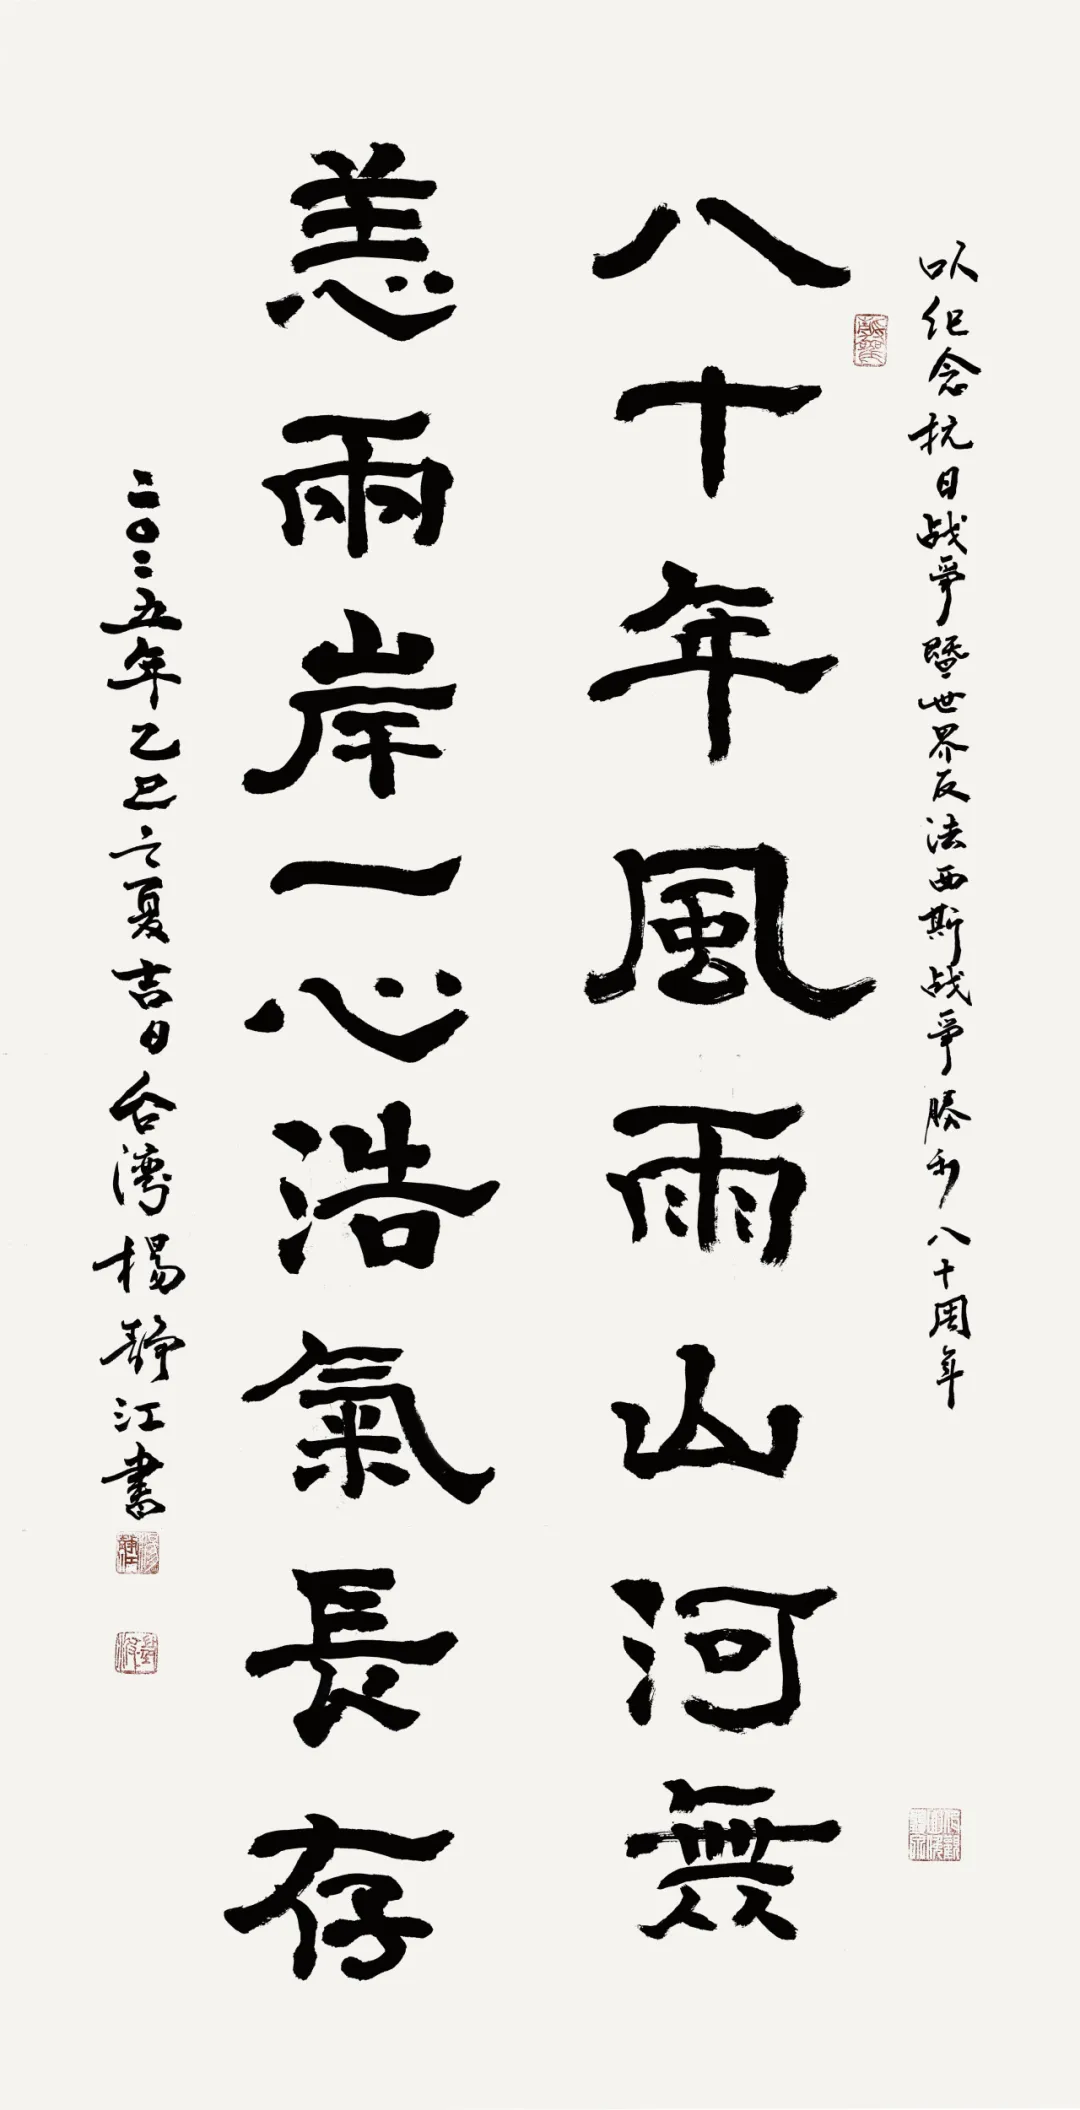 以纪念抗日战争暨世界反法西斯战争勝利八十周年
八十年風雨山河無
恙兩岸一心浩氣長存
二〇二五年乙巳之夏吉日台湾楊静江書